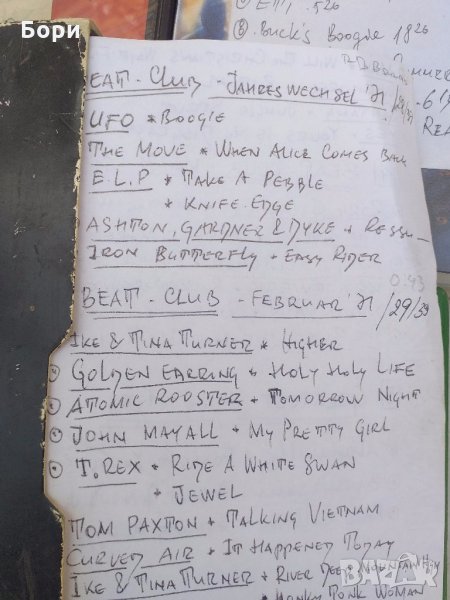 Бори
ETI . 526
Buck's Boogie 18 26
EAT - CLUB - JAHRESWECHSEL '71 /29/39
UFO * BOOGIE
THE MOVE * WHEN ALICE COMES BACK
E.L.P * TAKE A PEBBLE
* KNIFE-EDGE
ASHTON, GARDNER & DYKE * RESSU
IRON BUTTERFLY * EASY RIDER
0:43
BEAT - CLUB - FEBRUAR '71 /29/39
IKE & TINA TURNER * HIGHER
GOLDEN EARRING * HOLY HOLY LIFE
ATOMIC ROOSTER * TOMORROW NIGHT
JOHN MAYALL * MY PRETTY GIRL
T.REX * RIDE A WHITE SWAN
* JEWEL
TOM PAXTON * TALKING VIETNAM
CURVED AIR * IT HAPPENED TODAY
IKE & TINA TURNER * RIVER DEEP MOUNTAIN HIGH
HONKY TONK WOMAN
BAZAR